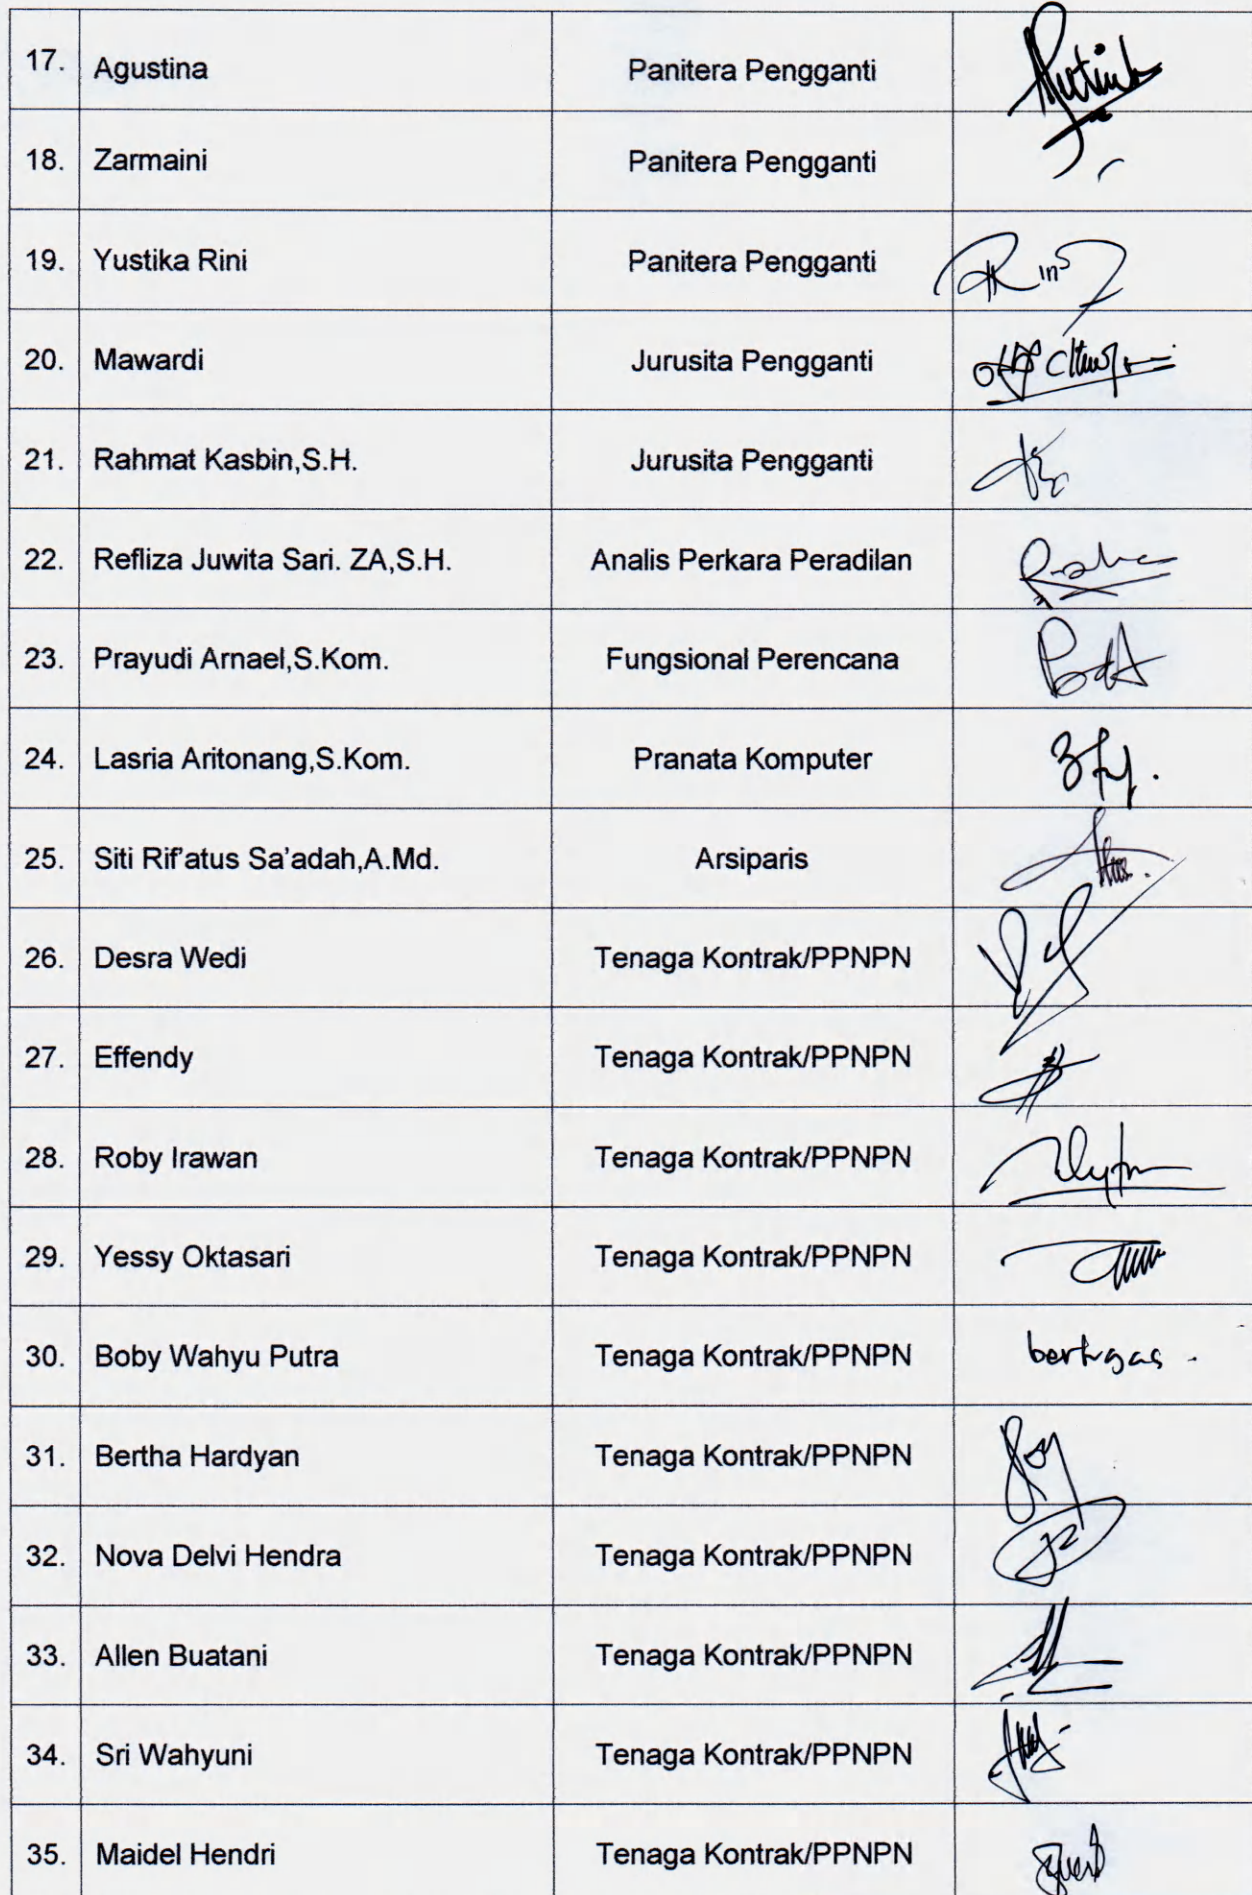 17. Agustina Panitera Pengganti
18. Zarmaini Panitera Pengganti
19. Yustika Rini Panitera Pengganti
20. Mawardi Jurusita Pengganti
21. Rahmat Kasbin,S.H. Jurusita Pengganti
22. Refliza Juwita Sari. ZA,S.H. Analis Perkara Peradilan
23. Prayudi Arnael,S.Kom. Fungsional Perencana
24. Lasria Aritonang,S.Kom. Pranata Komputer
25. Siti Rif'atus Sa'adah,A.Md. Arsiparis
26. Desra Wedi Tenaga Kontrak/PPNPN
27. Effendy Tenaga Kontrak/PPNPN
28. Roby Irawan Tenaga Kontrak/PPNPN
29. Yessy Oktasari Tenaga Kontrak/PPNPN
30. Boby Wahyu Putra Tenaga Kontrak/PPNPN bertugas -
31. Bertha Hardyan Tenaga Kontrak/PPNPN
32. Nova Delvi Hendra Tenaga Kontrak/PPNPN
33. Allen Buatani Tenaga Kontrak/PPNPN
34. Sri Wahyuni Tenaga Kontrak/PPNPN
35. Maidel Hendri Tenaga Kontrak/PPNPN